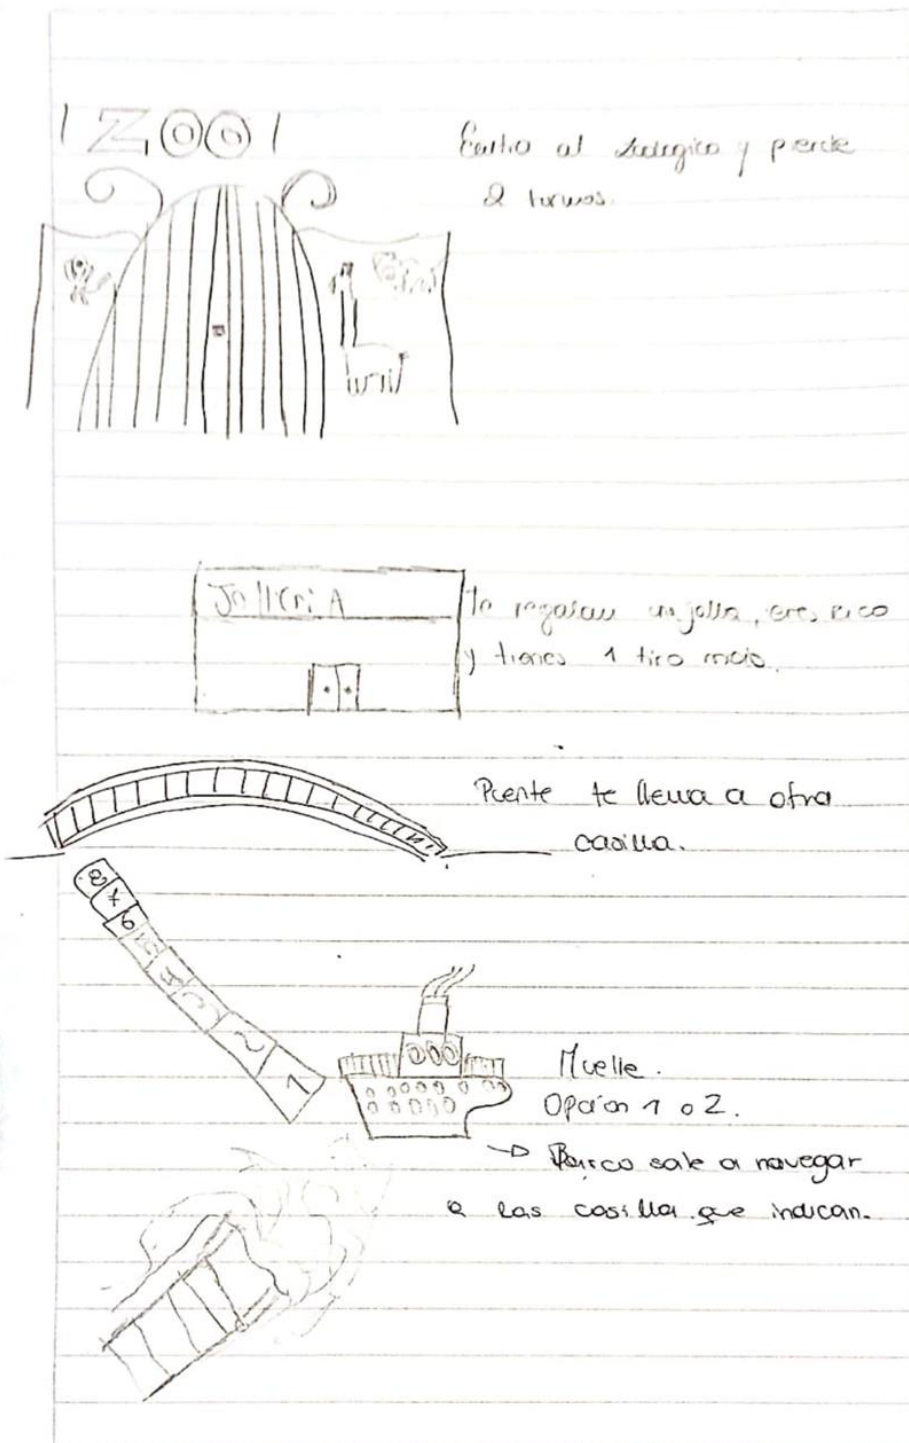 ZOO
Entro al zoologico y pierde
2 turnos.
JollCriA
Te regalan una jolla, eres rico
y tienes 1 tiro mais.
Puente te lleva a otra
casilla.
8
7
6
5
4
3
2
1
Muelle.
Opcion 1 o 2.
→ Barco sale a navegar
a las casilla que indican.